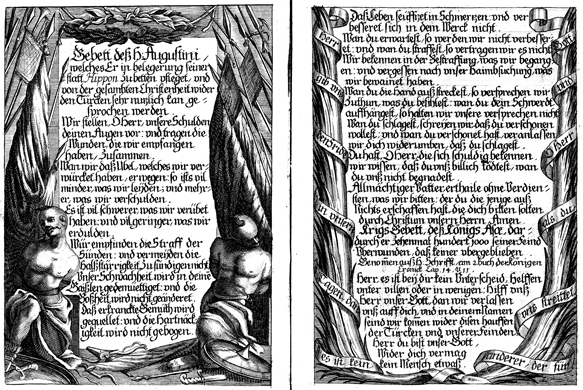 Gebett deß H. Augustini,
welches Er in belegerung seiner
statt Hippon zubetten pfleget, und
von der gesambten Christenheit wider
den Türcken sehr nutzlich kan ge-
sprochen werden.
Wir stellen, O herr, unsere Schulden
deinen Augen vor: und tragen die
Wunden, die wir empfangen
haben, Zusammen.
Wan wir daß übel, welches wir ver-
würcket haben, erwegen: so ists vil
minder, was wir leyden; und mehr-
er, was wir verschulden.
Es ist vil schwerer, was wir verübt
haben: und vil geringer, was wir
erdulden.
Wür empfinden die Straff der
Sünden: und vermeiden die
Halßstarrigkeit Zusündigen nicht.
Unser Schwachheit wird in deine
Gaißlen gedemüettiget: und die
Boßheit wird nicht geänderet.
Daß erkranckte Gemüth wird
gequellet: und die Hartnäck-
igkeit wird nicht gebogen.
Daß Leben seüfftzet in Schmertzen: und ver-
besseret sich in dem Werck nicht.
Wan du erwartest, so werden wir nicht verbesser-
et: und wan du straffest, so vertragen wir es nicht.
Wir bekennen in der Bestraffung, was wir began-
gen: und vergessen nach unser Haimbsuchung, was
wir bewainet haben.
Wan du die Hand außstreckest, so versprechen wir
Zuthun, was du befihlest: wan du dein Schwerdt
auffhängest, so halten wir unsere versprechen nicht.
Wan du schlagest, schreyen wir, daß du verschonen
wollest: und wan du verschonet hast, veranlassen
wir dich widerumben, daß du schlagest.
Du hast, O Herr, die sich schuldig bekennen,
wir wissen, daß du unß billich tödtest, wan
du unß nicht begnadest.
Allmächtiger Vatter ertheile ohne Verdien-
sten, was wir bitten, der du die jenige auß
Nichts erschaffen hast, die dich bitten solten
durch Christum unsern Herrn. Amen.
Kriegs Gebett, deß Königs Asæ, dar-
durch er Zehenmal hundert 1000 seiner Feind
Uberwunden, daß keiner ubergeblieben.
Genomen auß H. Schrifft, am 2 buch des Königen
Cap. 14. V. 11.
Herr, es ist bej dir kein Unterscheid, Helffen
unter villen oder in wenigen. Hilff unß
Herr unser Gott, dan wir verlassen
unß auff dich, und in deinem Namen
seind wir komen wider disen hauffen
der Türcken und unserer Feinden.
Herr du bist unser Gott,
Wider dich vermag
kein Mensch etwaß.
O Herr
es ist kein
anderer, der für
unß streittet